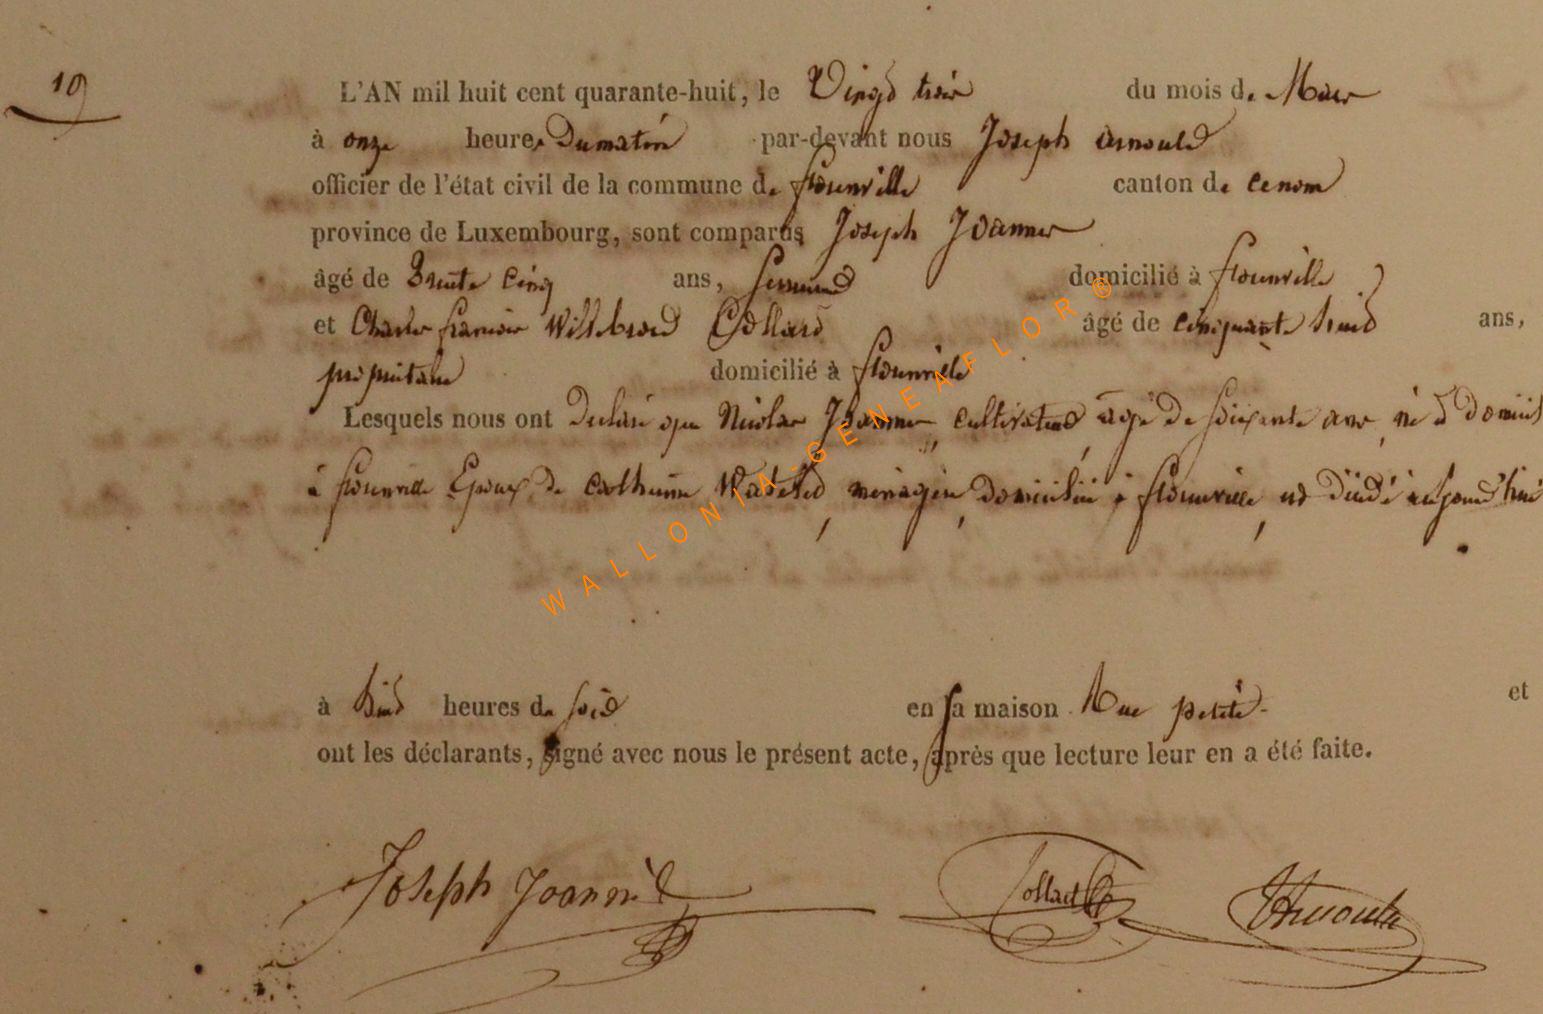 10
L'AN mil huit cent quarante-huit, le Vingt trois du mois de Mars
à onze heures Du matin par-devant nous Joseph arnould
officier de l'état civil de la commune de florenville canton de
province de Luxembourg, sont comparus Joseph Joannes
âgé de Trente Cinq ans, domicilié à florenville
et Charles francois Willebrord Collard âgé de cinquante huit ans,
propriétaire domicilié à florenville
Lesquels nous ont Declaré que Nicolas Joannes, cultivateur, agé De soixante ans, né &
à florenville Epoux de Catherine Watelet, menagère, domiciliée à florenville, est décédé aujourd'hui
à huit heures du soir en sa maison Rue petite et
ont les déclarants, signé avec nous le présent acte, après que lecture leur en a été faite.
Joseph Joannès Collard Arnould
WALLONIA-GENEAFLOR®